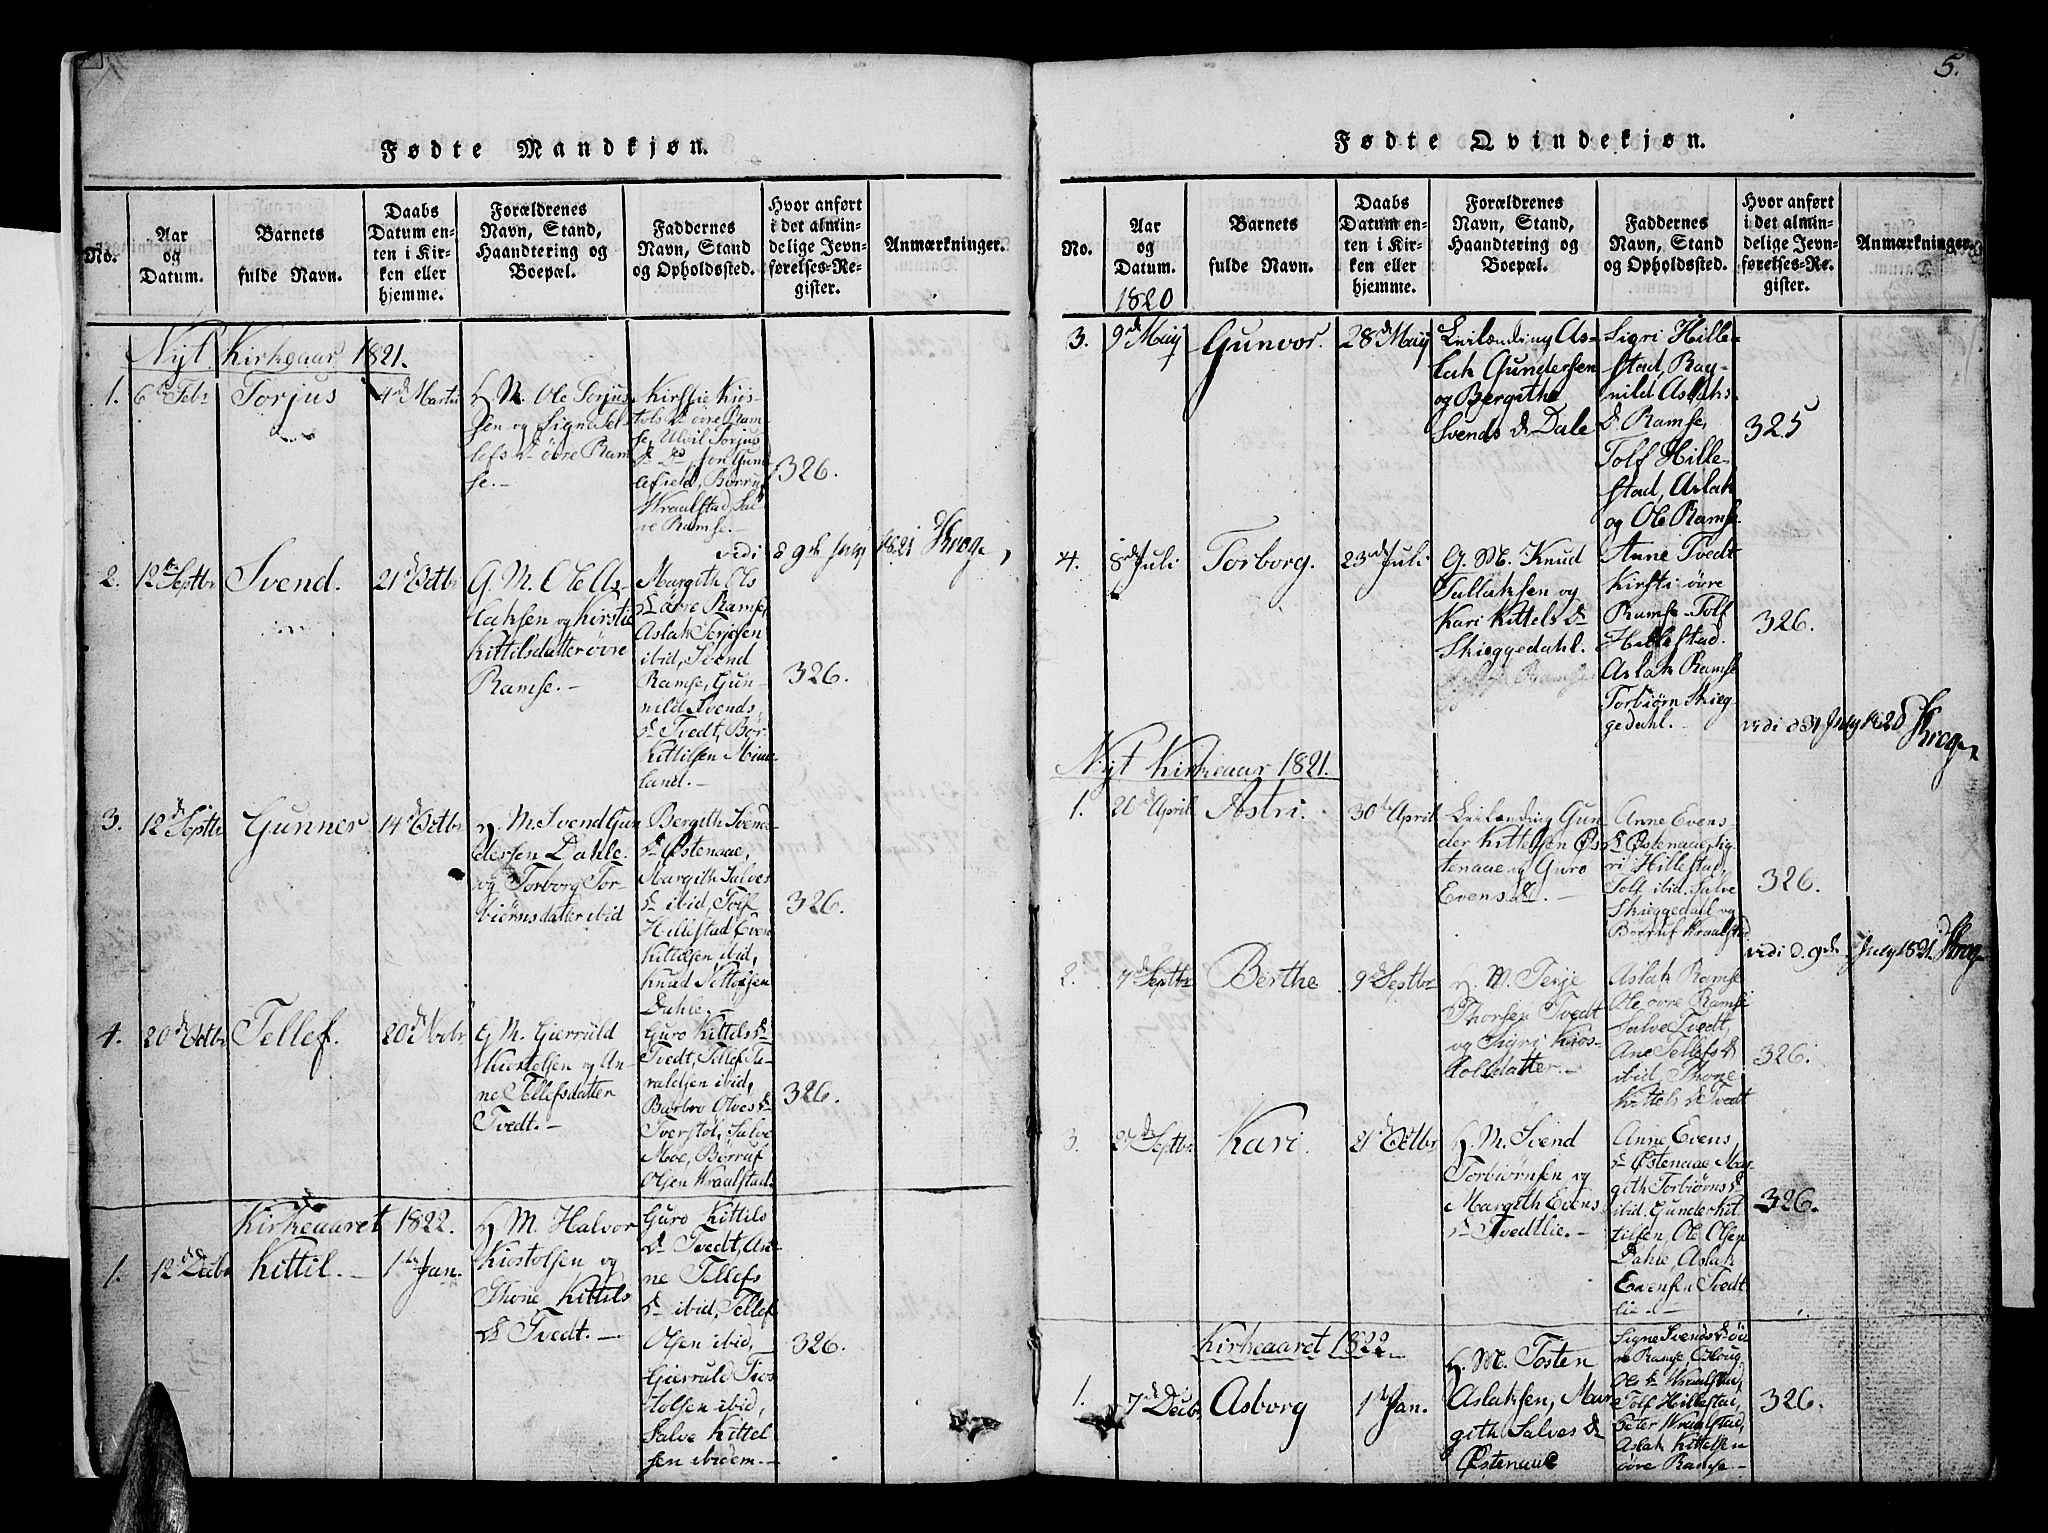 Fødte Mandkjøn.
No.
Aar
og
Datum.
Barnets
fulde Navn.
Daabs
Datum en-
ten i Kir-
ken eller
hjemme.
Forældrenes
Navn, Stand,
Haandtering og
Boepæl.
Faddernes
Navn, Stand
og Opholdssted.
Hvor anført
i det almin-
delige Jevn-
førelses-Re-
gister.
Anmærkninger.
Nyt Kirkeaar 1821.
1.
6 Febr
Torjus
4d Martii
G. M. Ole Torjus
sen og Signe Tel
lefs dr øvre Ram
se.-
Kirstie Kios-
tols dr øvre Ram
se,
Torjus
Jon
Børruf
Wraalstad, Sal
ve Ramse.-
326.
vidi d 9de July 1821 Krog
2.
12te Septbr
Svend.
21d Octbr
G. M. Ole As
laksen og Kirstie
Kittilsdatter øvre
Ramse.-
Margith Ols
dr øvre Ramse,
Aslak Terjesen
ibid, Svend
Ramse, Gun-
nild Svends
dr Tvedt, Bør
Kittilsen Mine
land.-
326.
3.
12d Septbr
Gunner
14d Octbr
G. M. Svend Gun
dersen Dahle
og Torborg Tor-
biørnsdatter ibid
Bergith Svends
dr Østenaae,
Margith Salves
dr ibid, Tolf
Hillestad, Even
Kittilsen ibid,
Knud
Dahle.-
326.
4.
20d Octbr
Tellef.
20d Nobr
G. M. Gierruld
Kiostelsen og An-
ne Tellefsdatter
Tvedt.-
Guro Kittels dr
Tvedt, Tellef Je-
raldsen ibid,
Barbro Olves dr
Tverstøl, Salve
Moe, Børruf
Olsen Wraalstad.
326.
Kirkeaaret 1822.
1.
12d Decbr
Kittil.-
1ste Jan.
G. M. Halvor
Kiostolsen og
Thone Kittils
dr Tvedt.-
Guro Kittils
dr Tvedt, An-
ne Tellefs
dr ibid, Tellef
Olsen ibid,
Gierruld Kios
tolsen ibid,
Salve Kittel
sen ibidem.-
326.
5.
Fødte Qvindekjøn.
No.
Aar
og
Datum.
1820
Barnets
fulde Navn.
Daabs
Datum en-
ten i Kir-
ken eller
hjemme.
Forældrenes
Navn, Stand,
Haandtering og
Boepæl.
Faddernes
Navn, Stand
og Opholdssted.
Hvor anført
i det almin-
delige Jevn-
førelses-Re-
gister.
Anmærkninger.
3.
9d May
Gunvor.
28d May
Leilænding As-
lak Gundersen
og Bergithe
Svends dr Dale
Sigri Hille-
stad, Rag-
nild Aslaks
dr Ramse,
Tolf Hille-
stad, Aslak
og Ole Ramse.
325
4.
8d Juli
Torborg.
23d Juli
G. M. Knud
Tallaksen og
Kari Kittels dr
Skieggedahl.
Anne Tvedt
Kirsti øvre
Ramse. Tolf
Hillestad.
Aslak Ramse
Torbiørn Skieg
gedahl.-
326.
vidi d 31 July 1820 Krog
Nyt Kirkeaar 1821.
1.
20d April
Astri.
30d April
Leilænding Gun
der Kittelsen Øs
tenaae og Guro
Evens dr.-
Anne Evens-
dr Østenaae, Sig
ri Hillestad,
Tolf ibid. Salve
Skieggedahl og
Børruf Wraalstad
326.
vidi d. 9de July 1821 Krog
2.
7d Septbr
Berthe
9d Septbr
G. M. Terje
Thorsen Tvedt
og Sigri Kios-
tolsdatter.-
Aslak Ramse
Ole øvre Ramse
Salve Tvedt,
Ane Tellefs dr
ibid, Thone
Kittels dr Tvedt
326.
3.
27de Septbr
Kari.
21d Octbr
G. M. Svend
Torbiørnsen og
Margith Evens
dr Tvedtlie.-
Anne Evens,
dr Østenaae, Mar
gith Torbiørns dr
ibid. Gunder Kit
tilsen, Ole Olsen
Dahle, Aslak
Evensen Tvedt
lie.-
326.
Kirkeaaret 1822.
1.
7d Decbr
Asborg
1ste Jan.
G. M. Tosten
Aslaksen, Mar
gith Salves dr
Østenaae
Signe Svends dr øv
re Ramse, Oslaug
Ols dr Wraalstad,
Tolf Hillestad,
Peter Wraalstad,
Aslak Kittelsen
øvre Ramse.-
326.